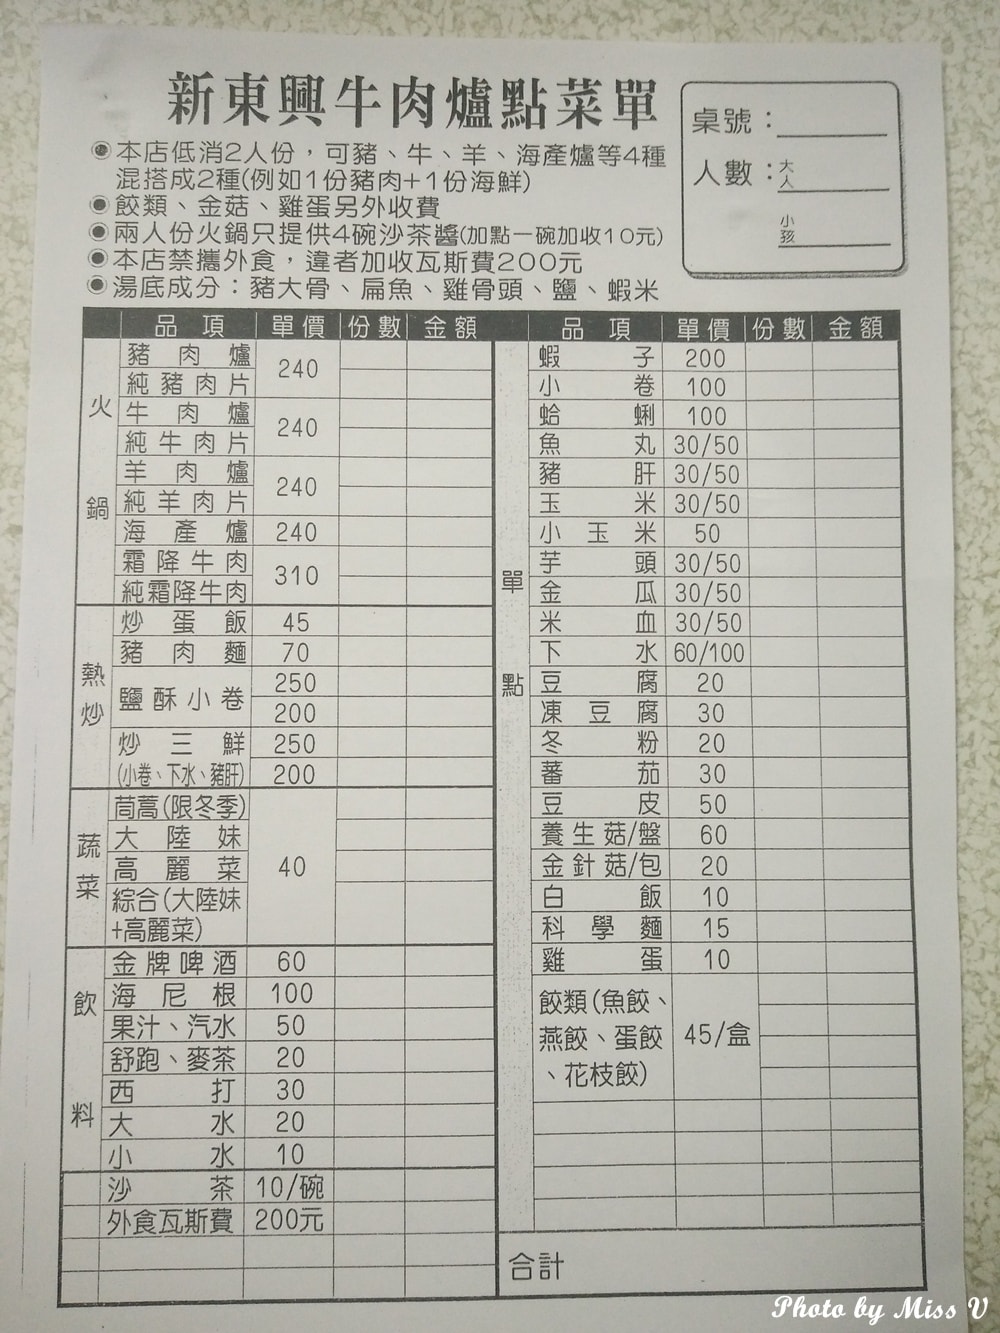 新東興牛肉爐點菜單
桌號：
人數：大人
小孩
◉本店低消2人份，可豬、牛、羊、海產爐等4種
混搭成2種(例如1份豬肉+1份海鮮)
◉餃類、金菇、雞蛋另外收費
◉兩人份火鍋只提供4碗沙茶醬(加點一碗加收10元)
◉本店禁攜外食，違者加收瓦斯費200元
◉湯底成分：豬大骨、扁魚、雞骨頭、鹽、蝦米
品項 單價 份數 金額
火鍋
豬肉爐 240
純豬肉片
牛肉爐 240
純牛肉片
羊肉爐 240
純羊肉片
海產爐 240
霜降牛肉 310
純霜降牛肉
熱炒
炒蛋飯 45
豬肉麵 70
鹽酥小卷 250
200
炒三鮮 250
(小卷、下水、豬肝) 200
蔬菜
茼蒿(限冬季) 40
大陸妹
高麗菜
綜合(大陸妹
+高麗菜)
飲料
金牌啤酒 60
海尼根 100
果汁、汽水 50
舒跑、麥茶 20
西打 30
大水 20
小水 10
沙茶 10/碗
外食瓦斯費 200元
品項 單價 份數 金額
單點
蝦子 200
小卷 100
蛤蜊 100
魚丸 30/50
豬肝 30/50
玉米 30/50
小玉米 50
芋頭 30/50
金瓜 30/50
米血 30/50
下水 60/100
豆腐 20
凍豆腐 30
冬粉 20
蕃茄 30
豆皮 50
養生菇/盤 60
金針菇/包 20
白飯 10
科學麵 15
雞蛋 10
餃類(魚餃、
燕餃、蛋餃 45/盒
、花枝餃)
合計
Photo by Miss V